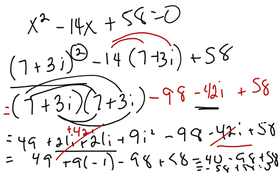 x² - 14x + 58 = 0
(7+3i)² - 14(7+3i) + 58
= (7+3i)(7+3i) - 98 - 42i + 58
+42i
= 49 + 21i + 21i + 9i² - 98 - 42i + 58
= 49 + 9(-1) - 98 + 58 = 40 - 98 + 58